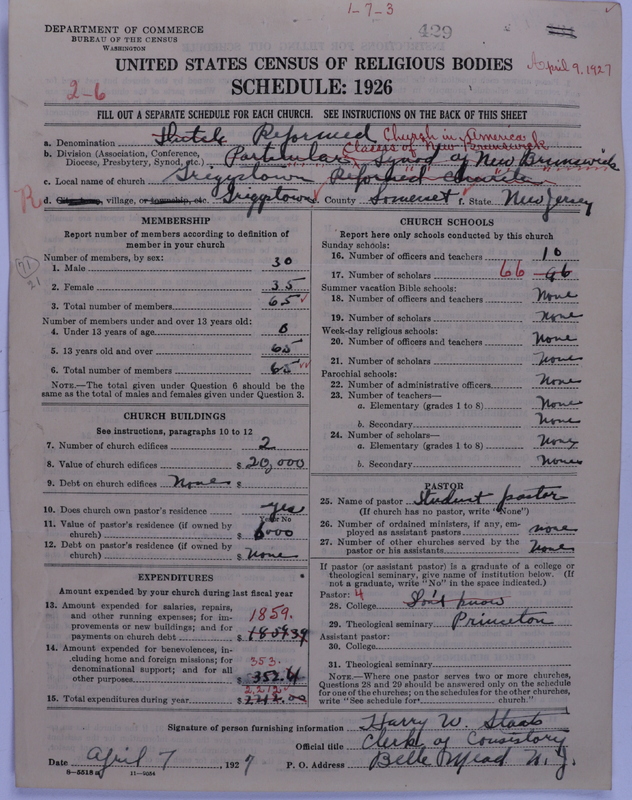 1-7-3
DEPARTMENT OF COMMERCE
BUREAU OF THE CENSUS
WASHINGTON
429
UNITED STATES CENSUS OF RELIGIOUS BODIES
April 9, 1927
SCHEDULE: 1926
2-6
FILL OUT A SEPARATE SCHEDULE FOR EACH CHURCH. SEE INSTRUCTIONS ON THE BACK OF THIS SHEET
a. Denomination Dutch Reformed Church in America
Classis of New Brunswick
b. Division (Association, Conference, Diocese, Presbytery, Synod, etc.) Particular Synod of New Brunswick
c. Local name of church Griggstown Reformed Church
R d. City, town, village, or township, etc. Griggstown e. County Somerset f. State New Jersey
MEMBERSHIP
Report number of members according to definition of member in your church
Number of members, by sex:
1. Male 30
71
21
2. Female 35
3. Total number of members 65
Number of members under and over 13 years old:
4. Under 13 years of age 0
5. 13 years old and over 65
6. Total number of members 65
NOTE.—The total given under Question 6 should be the same as the total of males and females given under Question 3.
CHURCH BUILDINGS
See instructions, paragraphs 10 to 12
7. Number of church edifices 2
8. Value of church edifices $ 20,000
9. Debt on church edifices None $
10. Does church own pastor's residence yes
Yes or No
11. Value of pastor's residence (if owned by church) $ 6000
12. Debt on pastor's residence (if owned by church) $ None
EXPENDITURES
Amount expended by your church during last fiscal year
13. Amount expended for salaries, repairs, and other running expenses; for improvements or new buildings; and for payments on church debt 1859. $ 1859.39
14. Amount expended for benevolences, including home and foreign missions; for denominational support; and for all other purposes 353. $ 352.61
15. Total expenditures during year 2,212 $ 2212.00
CHURCH SCHOOLS
Report here only schools conducted by this church
Sunday schools:
16. Number of officers and teachers 10
17. Number of scholars 66
Summer vacation Bible schools:
18. Number of officers and teachers None
19. Number of scholars None
Week-day religious schools:
20. Number of officers and teachers None
21. Number of scholars None
Parochial schools:
22. Number of administrative officers None
23. Number of teachers—
a. Elementary (grades 1 to 8) None
b. Secondary None
24. Number of scholars—
a. Elementary (grades 1 to 8) None
b. Secondary None
PASTOR
25. Name of pastor Student pastor
(If church has no pastor, write "None")
26. Number of ordained ministers, if any, employed as assistant pastors none
27. Number of other churches served by the pastor or his assistants None
If pastor (or assistant pastor) is a graduate of a college or theological seminary, give name of institution below. (If not a graduate, write "No" in the space indicated.)
Pastor: 4
28. College Don't know
29. Theological seminary Princeton
Assistant pastor:
30. College
31. Theological seminary
NOTE.—Where one pastor serves two or more churches, Questions 28 and 29 should be answered only on the schedule for one of the churches; on the schedules for the other churches, write "See schedule for church."
Signature of person furnishing information Harry W. Staats
Official title Clerk of Consistory
Date April 7, 1927 P. O. Address Belle Mead N. J.
8-5518 a 11-9054